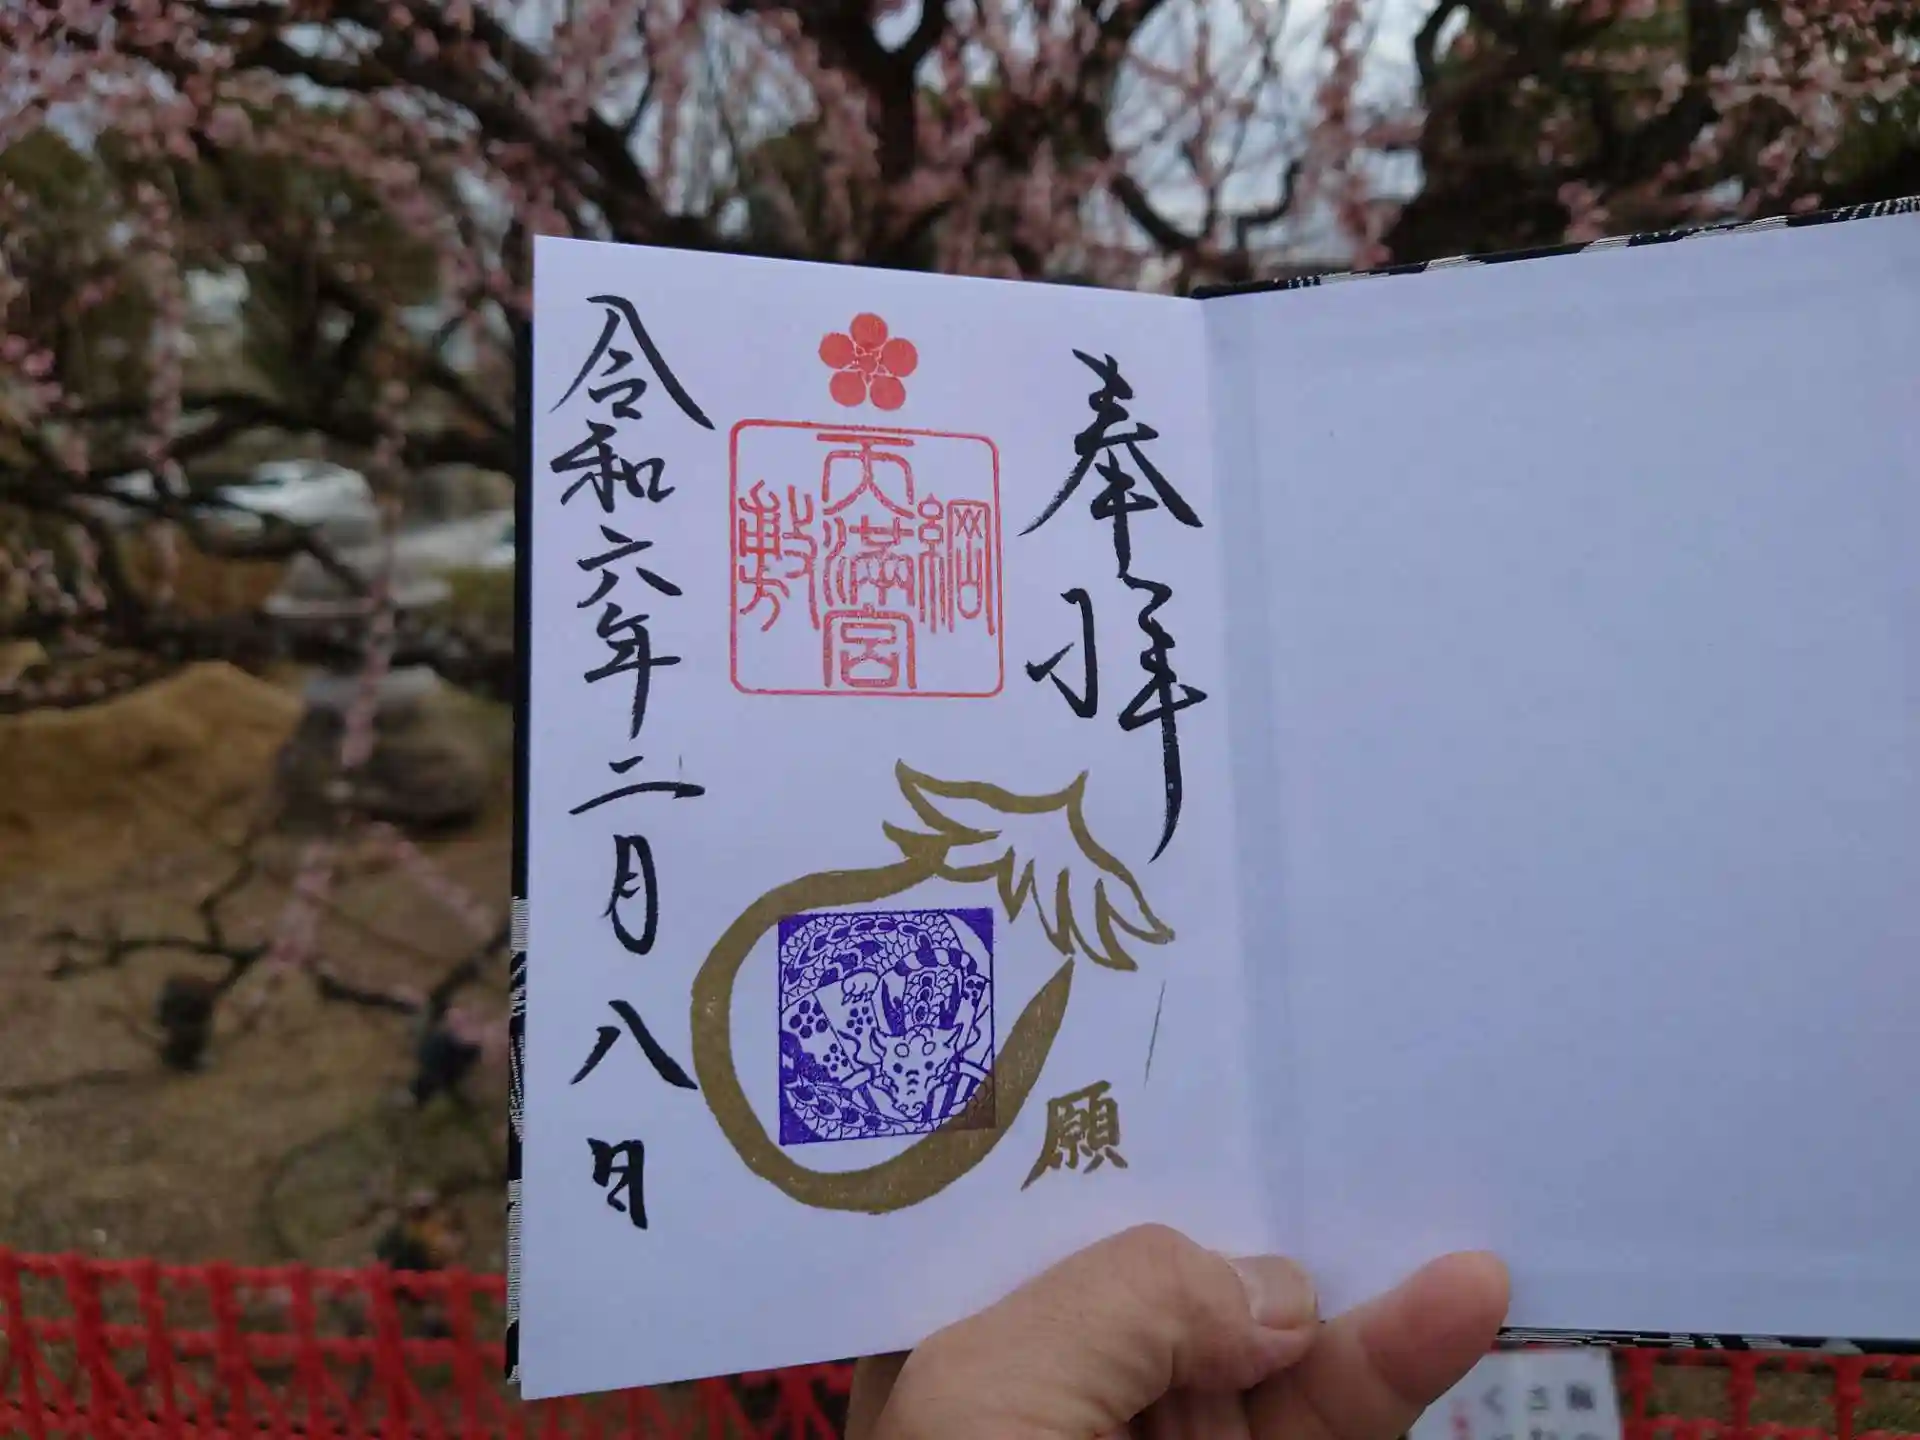 奉拝
綱
天満宮
敷
願
令和六年二月八日